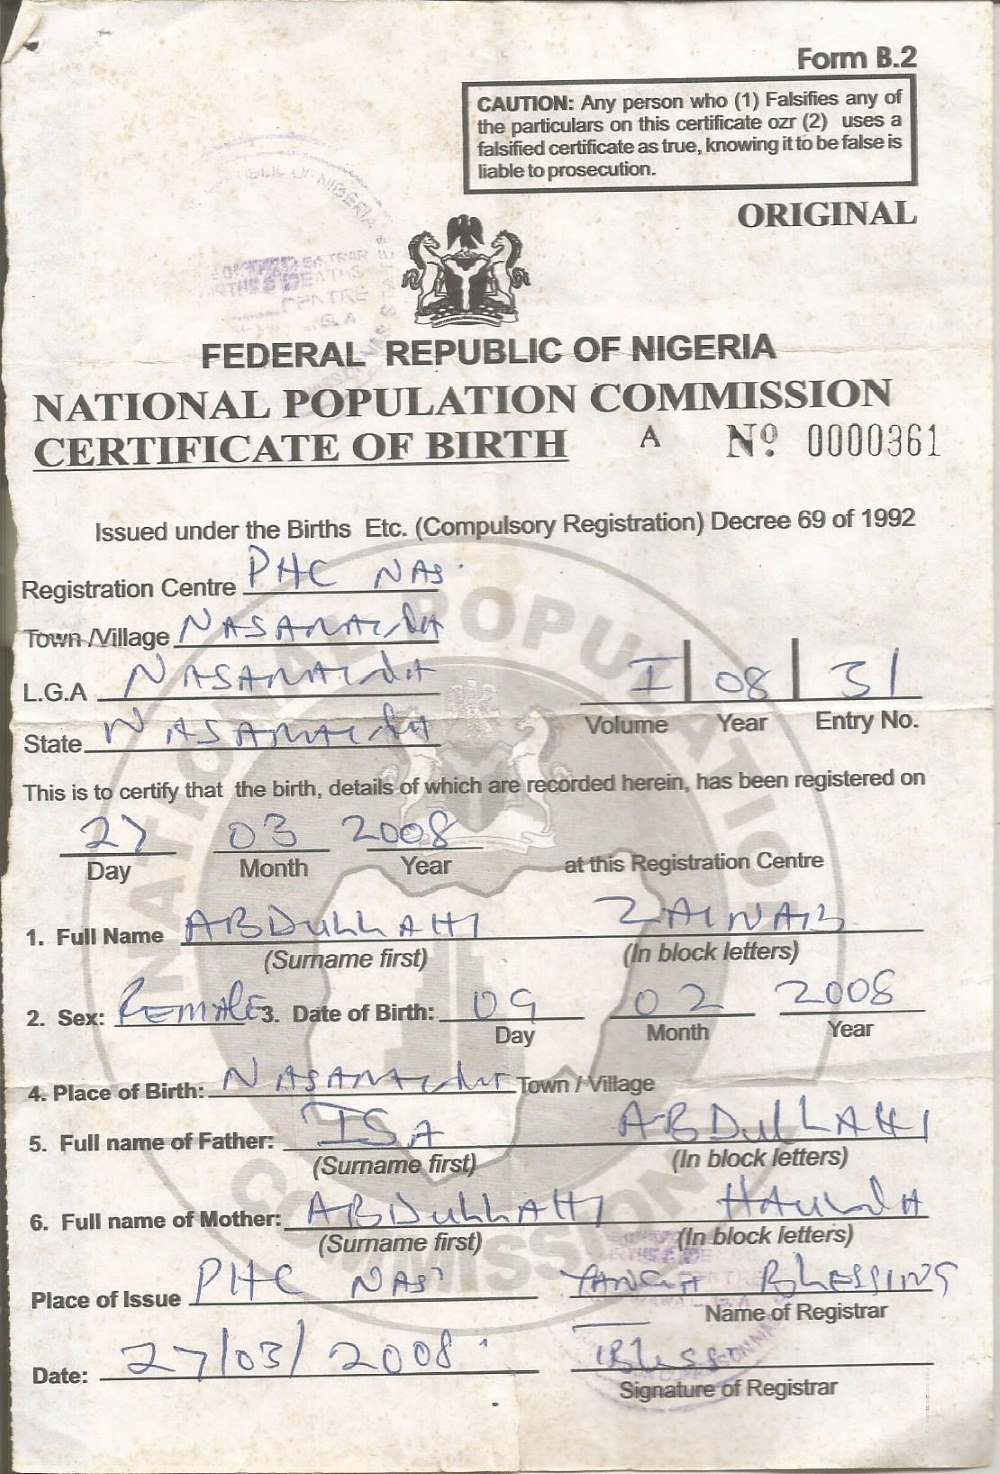 Form B.2
CAUTION: Any person who (1) Falsifies any of
the particulars on this certificate ozr (2) uses a
falsified certificate as true, knowing it to be false is
liable to prosecution.
ORIGINAL
NIGERIA
FEDERAL REPUBLIC OF NIGERIA
NATIONAL POPULATION COMMISSION
CERTIFICATE OF BIRTH A Nº 0000361
Issued under the Births Etc. (Compulsory Registration) Decree 69 of 1992
Registration Centre PHC NAS
Town /Village NASARAWA
L.G.A NASARAWA
I 08 31
Volume Year Entry No.
State NASARAWA
This is to certify that the birth, details of which are recorded herein, has been registered on
27 03 2008
Day Month Year at this Registration Centre
1. Full Name ABDULLAHI ZAINAB
(Surname first) (In block letters)
2. Sex: FEMALE 3. Date of Birth: 09 02 2008
Day Month Year
4. Place of Birth: NASARAWA Town / Village
5. Full name of Father: ISA ABDULLAHI
(Surname first) (In block letters)
6. Full name of Mother: ABDULLAHI HAUWA
(Surname first) (In block letters)
Place of Issue PHC NAS BLESSING
Name of Registrar
Date: 27/03/2008
Signature of Registrar
NATIONAL POPULATION COMMISSION